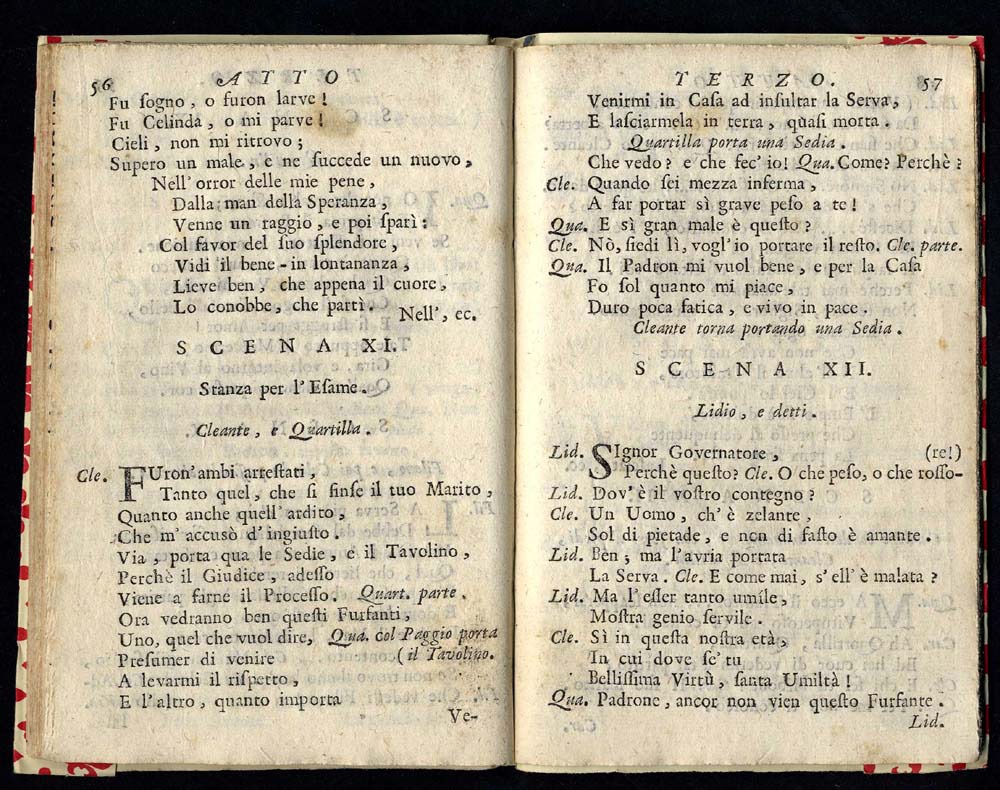 56 ATTO
Fu ſogno, o furon larve!
Fu Celinda, o mi parve!
Cieli, non mi ritrovo;
Supero un male, e ne ſuccede un nuovo,
Nell' orror delle mie pene,
Dalla man della Speranza,
Venne un raggio, e poi ſparì:
Col favor del ſuo ſplendore,
Vidi il bene - in lontananza,
Lieve ben, che appena il cuore,
Lo conobbe, che partì.
Nell', ec.
SCENA XI.
Stanza per l' Eſame.
Cleante, e Quartilla.
Cle. FUron' ambi arreſtati,
Tanto quel, che ſi finſe il tuo Marito,
Quanto anche quell' ardito,
Che m' accusò d' ingiuſto.
Via, porta qua le Sedie, e il Tavolino,
Perchè il Giudice, adeſſo
Viene a farne il Proceſſo. Quart. parte.
Ora vedranno ben queſti Furfanti,
Uno, quel che vuol dire, Qua. col Paggio porta
Preſumer di venire (il Tavolino.
A levarmi il riſpetto,
E l'altro, quanto importa
Ve-
TERZO. 57
Venirmi in Caſa ad inſultar la Serva,
E laſciarmela in terra, quaſi morta.
Quartilla porta una Sedia.
Che vedo? e che fec' io! Qua. Come? Perchè?
Cle. Quando ſei mezza inferma,
A far portar sì grave peſo a te!
Qua. E sì gran male è queſto?
Cle. Nò, ſiedi lì, vogl' io portare il reſto. Cle. parte.
Qua. Il Padron mi vuol bene, e per la Caſa
Fo ſol quanto mi piace,
Duro poca fatica, e vivo in pace.
Cleante torna portando una Sedia.
SCENA XII.
Lidio, e detti.
Lid. SIgnor Governatore, (re!)
Perchè queſto? Cle. O che peſo, o che roſſo-
Lid. Dov' è il voſtro contegno?
Cle. Un Uomo, ch' è zelante,
Sol di pietade, e non di faſto è amante.
Lid. Ben; ma l'avria portata
La Serva. Cle. E come mai, s' ell' è malata?
Lid. Ma l'eſſer tanto umíle,
Moſtra genio ſervile.
Cle. Sì in queſta noſtra età,
In cui dove ſe' tu
Belliſſima Virtù, ſanta Umiltà!
Qua. Padrone, ancor non vien queſto Furfante.
Lid.